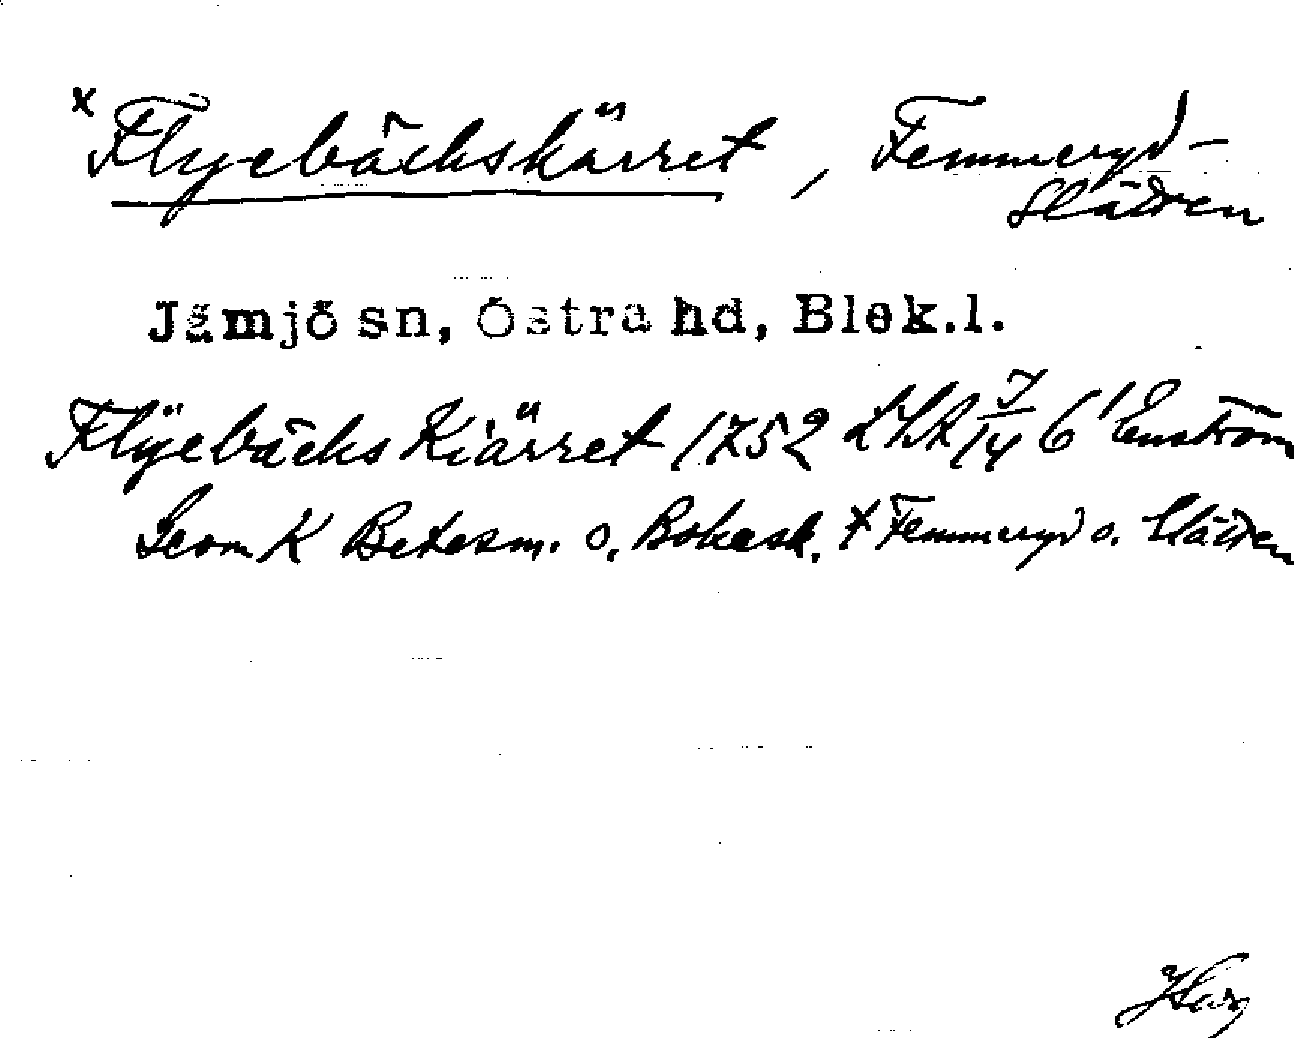 x Flyebäckskärret, Femmeryd-
Slätten
Jämjö sn, Östra hd, Blek.l.
Flÿebäcks Kiärret 1752 LSA 7/14 6' Enström
Geom K Betesm. o. Bokesk. x Femmeryd o. Slätten